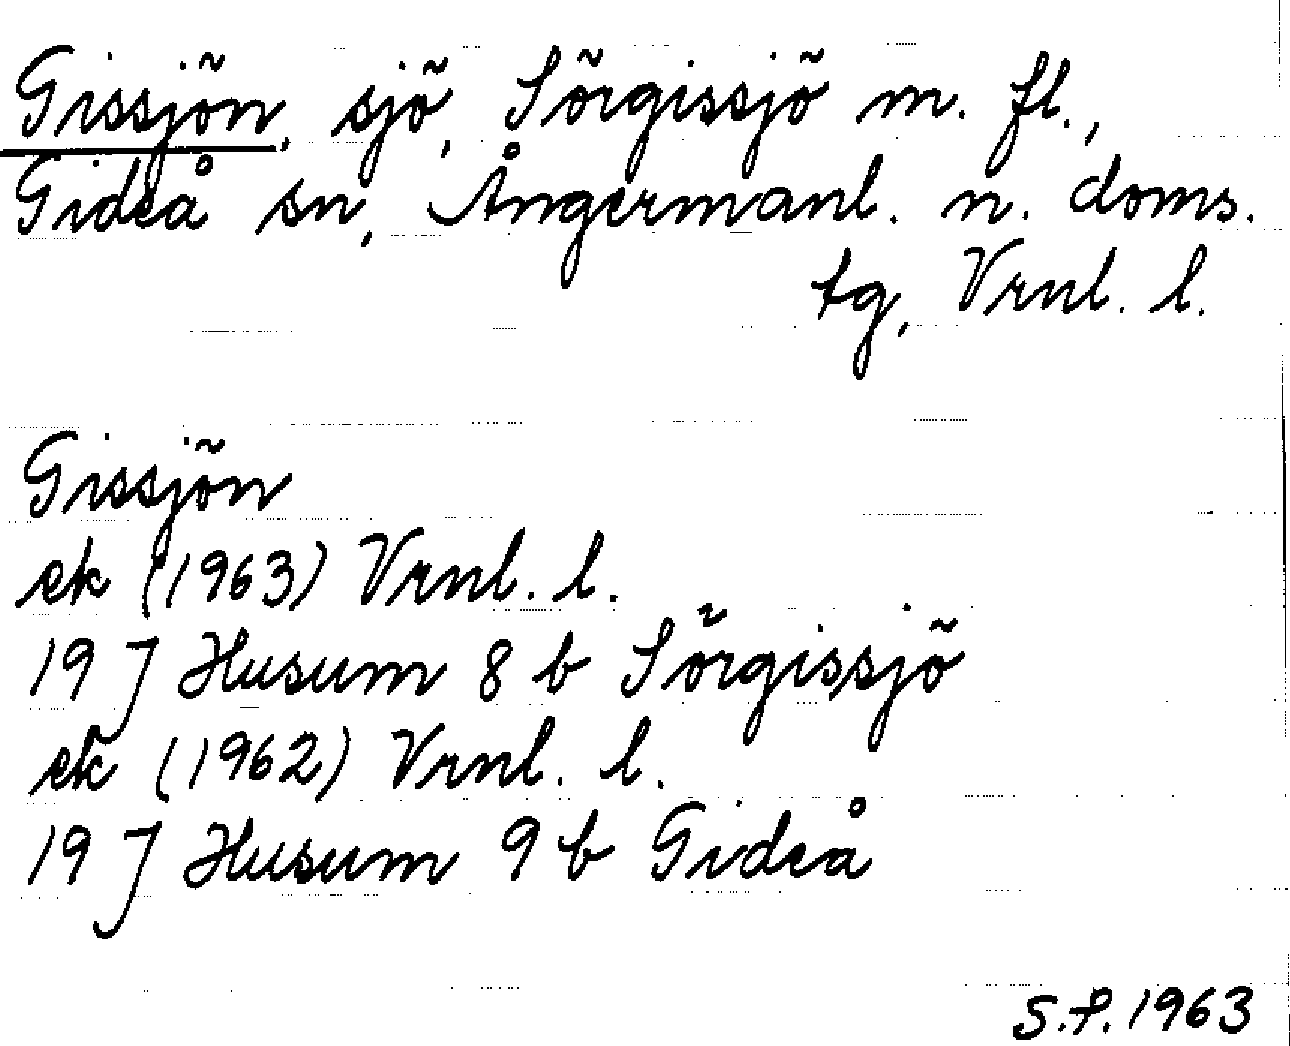 Gissjön, sjö, Sörgissjö m. fl.,
Gideå sn, Ångermanl. n. doms.
tg, Vrnl. l.
Gissjön
ek (1963) Vrnl. l.
19 J Husum 8 b Sörgissjö
ek (1962) Vrnl. l.
19 J Husum 9 b Gideå
S.F. 1963